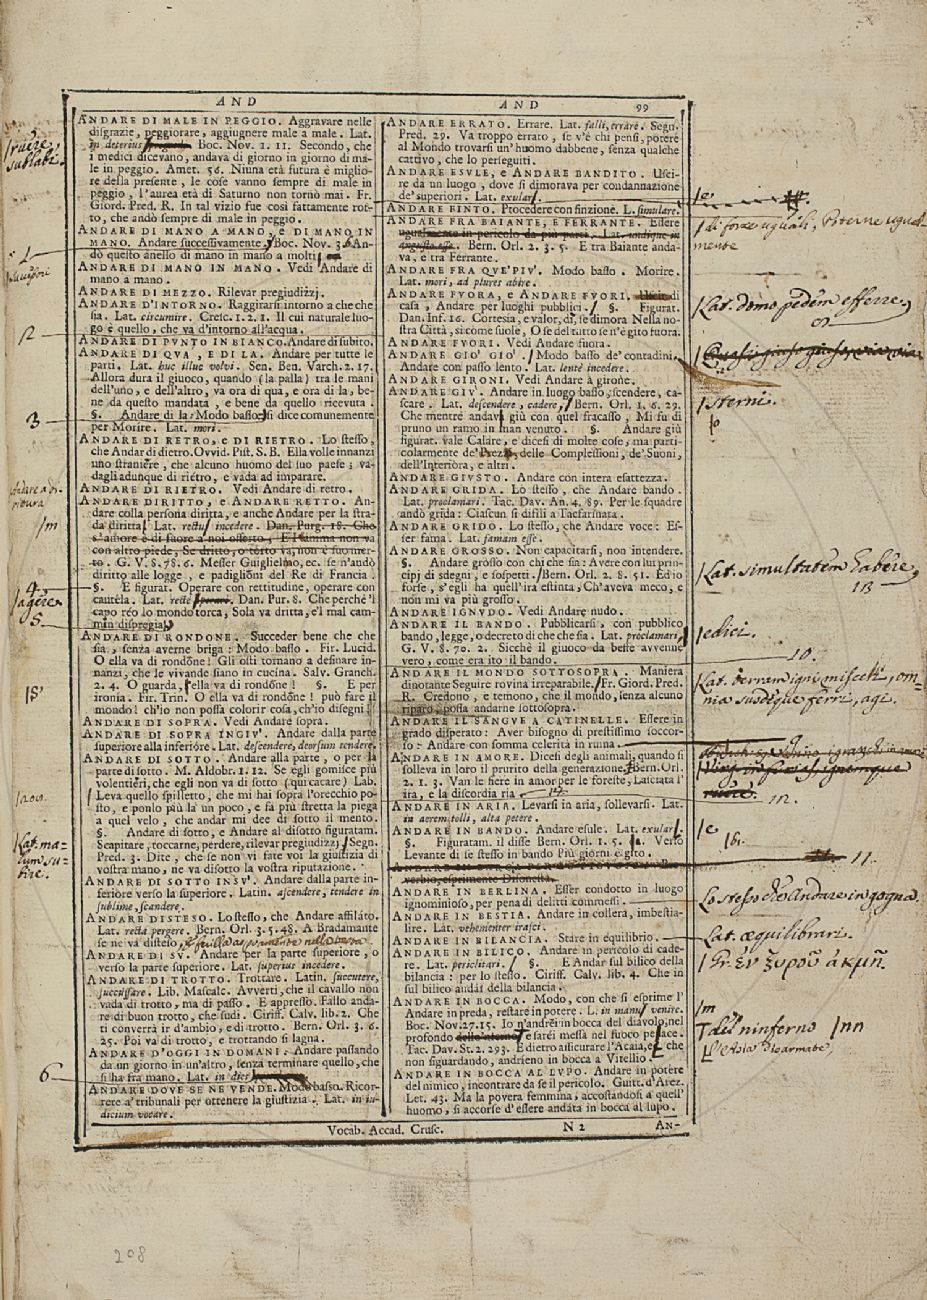 AND
AND 99
ANDARE DI MALE IN PEGGIO. Aggravare nelle
disgrazie, peggiorare, aggiugnere male a male. Lat.
in deterius Boc. Nov. 1. 11. Secondo, che
i medici dicevano, andava di giorno in giorno di ma-
le in peggio. Amet. 56. Niuna età futura è miglio-
re della presente, le cose vanno sempre di male in
peggio, l'aurea età di Saturno non tornò mai. Fr.
Giord. Pred. R. In tal vizio fue così fattamente rot-
to, che andò sempre di male in peggio.
ANDARE DI MANO A MANO, e DI MANO IN
MANO. Andare successivamente, Boc. Nov. 3. 6. An-
dò questo anello di mano in mano a molti
ANDARE DI MANO IN MANO. Vedi Andare di
mano a mano.
ANDARE DI MEZZO. Rilevar pregiudizzj.
ANDARE D'INTORNO. Raggirarsi intorno a che che
sia. Lat. circumire. Cresc. 1. 2. 1. Il cui naturale luo-
go è quello, che va d'intorno all'acqua.
ANDARE DI PUNTO IN BIANCO. Andar di subito.
ANDARE DI QUA, E DI LA. Andare per tutte le
parti. Lat. huc illuc volvi. Sen. Ben. Varch. 2. 17.
Allora dura il giuoco, quando (la palla) tra le mani
dell'uno, e dell'altro, va ora di qua, e ora di la, be-
ne da questo mandata, e bene da quello ricevuta.
§. Andare di la: Modo basso, si dice comunemente
per Morire. Lat. mori.
ANDARE DI RETRO, e DI RIETRO. Lo stesso,
che Andar di dietro. Ovvid. Pist. S. B. Ella volle innanzi
uno straniere, che alcuno huomo del suo paese; va-
dagli adunque di riétro, e vada ad imparare.
ANDARE DI RIETRO. Vedi Andare di retro.
ANDARE DI RITTO, e ANDARE RETTO. An-
dare colla persona diritta, e anche Andare per la stra-
da diritta. Lat. rectu incedere. Dan. Purg. 18. Che
s'amore è di fuore a noi offerto, E l'anima non va
con altro piede, Se dritto, o torto va, non è suo mer-
to. G. V. 8. 78. 6. Messer Guiglielmo, ec. se n'andò
diritto alle logge, e padiglioni del Re di Francia.
§. E figurat. Operare con rettitudine, operare con
cautela. Lat. rectè Dan. Pur. 8. Che perchè 'l
capo reo lo mondo torca, Sola va dritta, e 'l mal cam-
min dispregia.
ANDARE DI RONDONE. Succeder bene che che
sia, senza averne briga: Modo basso. Fir. Lucid.
O ella va di rondone! Gli osti tornano a desinare in-
nanzi, che le vivande siano in cucina. Salv. Granch.
2. 4. O guarda, s'ella va di rondone! §. E per
ironia. Fir. Trin. O ella va di rondone! può fare il
mondo! ch'io non possa colorir cosa, ch'io disegni!
ANDARE DI SOPRA. Vedi Andare sopra.
ANDARE DI SOPRA INGIV'. Andare dalla parte
superiore alla inferiore. Lat. descendere, deorsum tendere.
ANDARE DI SOTTO. Andare alla parte, o per la
parte di sotto. M. Aldobr. 1. 12. Se egli gomisce più
volentieri, che egli non va di sotto (qui cacare) Lab.
Leva quello spilletto, che mi hai sopra l'orecchio po-
sto, e ponlo più là un poco, e fa più stretta la piega
a quel velo, che andar mi dee di sotto il mento.
§. Andare di sotto, e Andare al disotto figuratam.
Scapitare, toccarne, perdere, rilevar pregiudizzj, Segn.
Pred. 3. Dite, che se non vi fate voi la giustizia di
vostra mano, ne va disotto la vostra riputazione.
ANDARE DI SOTTO INSV'. Andare dalla parte in-
feriore verso la superiore. Latin. ascendere, tendere in
sublime, scandere.
ANDARE DISTESO. Lo stesso, che Andare affilato.
Lat. recta pergere. Bern. Orl. 3. 5. 48. A Bradamante
se ne va disteso,
ANDARE DI SV. Andare per la parte superiore, o
verso la parte superiore. Lat. superius incedere.
ANDARE DI TROTTO. Trottare. Latin. succutere,
succussare. Lib. Mascalc. Avverti, che il cavallo non
vada di trotto, ma di passo. E appresso. Fallo anda-
re di buon trotto, che sudi. Ciriff. Calv. lib. 2. Che
ti converrà ir d'ambio, e di trotto. Bern. Orl. 3. 6.
25. Poi va di trotto, e trottando si lagna.
ANDARE D'OGGI IN DOMANI. Andare passando
da un giorno in un'altro, senza terminare quello, che
si ha fra mano. Lat. in dies
ANDARE DOVE SE NE VENDE. Modo basso. Ricor-
rere a' tribunali per ottenere la giustizia. Lat. in iu-
dicium vocare.
ANDARE ERRATO. Errare. Lat. falli, errare. Segn.
Pred. 29. Va troppo errato, se v'è chi pensi, potere
al Mondo trovarsi un'huomo dabbene, senza qualche
cattivo, che lo perseguiti.
ANDARE ESVLE, e ANDARE BANDITO. Usci-
re da un luogo, dove si dimorava per condannazione
de' superiori. Lat. exular
ANDARE FINTO. Procedere con finzione. L. simulare.
ANDARE FRA BAIANTE, E FERRANTE. Essere
ugualmente in pericolo da più parti. Lat. undique in
angusto esse. Bern. Orl. 2. 3. 5. E tra Baiante anda-
va, e tra Ferrante.
ANDARE FRA QVE' PIV'. Modo basso. Morire.
Lat. mori, ad plures abire.
ANDARE FVORA, e ANDARE FVORI. Uscir di
casa, Andare per luoghi pubblici. §. Figurat.
Dan. Inf. 16. Cortesia, e valor, di, se dimora Nella no-
stra Città, sì come suole, O se del tutto se n'è gito fuora.
ANDARE FVORI. Vedi Andare fuora.
ANDARE GIO' GIO'. Modo basso de' contadini,
Andare con passo lento. Lat. lentè incedere.
ANDARE GIRONI. Vedi Andare a girone.
ANDARE GIV'. Andare in luogo basso, scendere, ca-
scare. Lat. descendere, cadere, Bern. Orl. 1. 6. 29.
Che mentre andava giù con quel fracasso, Mi fu di
pruno un ramo in man venuto. §. Andare giù
figurat. vale Calare, e dicesi di molte cose, ma parti-
colarmente de' Prezzi, delle Complessioni, de' Suoni,
dell'Interiora, e altri.
ANDARE GIVSTO. Andare con intera esattezza.
ANDARE GRIDA. Lo stesso, che Andare bando.
Lat. proclamari. Tac. Dav. An. 4. 89. Per le squadre
andò grida: Ciascun si difili a Tacfarinata.
ANDARE GRIDO. Lo stesso, che Andare voce: Es-
ser fama. Lat. famam esse.
ANDARE GROSSO. Non capacitarsi, non intendere.
§. Andare grosso con chi che sia: Avere con lui prin-
cipj di sdegni, e sospetti. Bern. Orl. 2. 8. 51. Ed io
forse, s'egli ha quell'ira estinta, Ch'aveva meco, e
non mi va più grosso.
ANDARE IGNVDO. Vedi Andare nudo.
ANDARE IL BANDO. Pubblicarsi, con pubblico
bando, legge, o decreto di che che sia. Lat. proclamari,
G. V. 8. 70. 2. Sicchè il giuoco da beffe avvenne
vero, come era ito il bando.
ANDARE IL MONDO SOTTOSOPRA. Maniera
dinotante Seguire rovina irreparabile. Fr. Giord. Pred.
R. Credono, e temono, che il mondo, senza alcuno
riparo, possa andarne sottosopra.
ANDARE IL SANGVE A CATINELLE. Essere in
grado disperato: Aver bisogno di prestissimo soccor-
so: Andare con somma celerità in ruina.
ANDARE IN AMORE. Dicesi degli animali, quando si
solleva in loro il prurito della generazione, Bern. Orl.
2. 1. 3. Van le fiere in amor per le foreste, Lasciata l'
ira, e la discordia ria
ANDARE IN ARIA. Levarsi in aria, sollevarsi. Lat.
in aerem tolli, alta petere.
ANDARE IN BANDO. Andare esule. Lat. exular
§. Figuratam. il disse Bern. Orl. 1. 5. Verso
Levante di se stesso in bando Più giorni è gito.
ANDARE IN BERLINA. Esser condotto in luogo
ignominioso, per pena di delitti commessi.
ANDARE IN BESTIA. Andare in collera, imbestia-
lire. Lat. vehementer irasci.
ANDARE IN BILANCIA. Stare in equilibrio.
ANDARE IN BILICO. Andare in pericolo di cade-
re. Lat. periclitari. §. E Andar sul bilico della
bilancia: per lo stesso. Ciriff. Calv. lib. 4. Che in
sul bilico andai della bilancia.
ANDARE IN BOCCA. Modo, con che si esprime l'
Andare in preda, restare in potere. L. in manu venire.
Boc. Nov. 27. 15. Io n'andrei in bocca del diavolo, nel
profondo e sarei messa nel fuoco penace.
Tac. Dav. St. 2. 293. E dietro assicurare l'Acaia, e che
non sguardando, andrieno in bocca a Vitellio.
ANDARE IN BOCCA AL LVPO. Andare in potere
del nimico, incontrare da se il pericolo. Guitt. d'Arez.
Let. 43. Ma la povera femmina, accostandosi a quell'
huomo, si accorse d'essere andata in bocca al lupo.
Vocab. Accad. Crusc. N 2 AN-
ruere,
sublabi.
1
2
3
/m
4
/agere
5
6
/Lat. ma-
lum su-
bire.
/e
/di forze uguali, o starne ugual-
mente
/Lat. domo pedem efferre,
/sterni.
/Lat. simultatem habere,
13
/edici.
10.
/Lat. terram igni misceri, om-
nia susdeque ferri, agi.
9
12.
/e
11.
Lo stesso che Andare in gogna.
Lat. æquilibrari.
/Gr. ἐν ξυροῦ ἀκμῇ.
/m
del ninferno /nn
l'Asia disarmata,
208